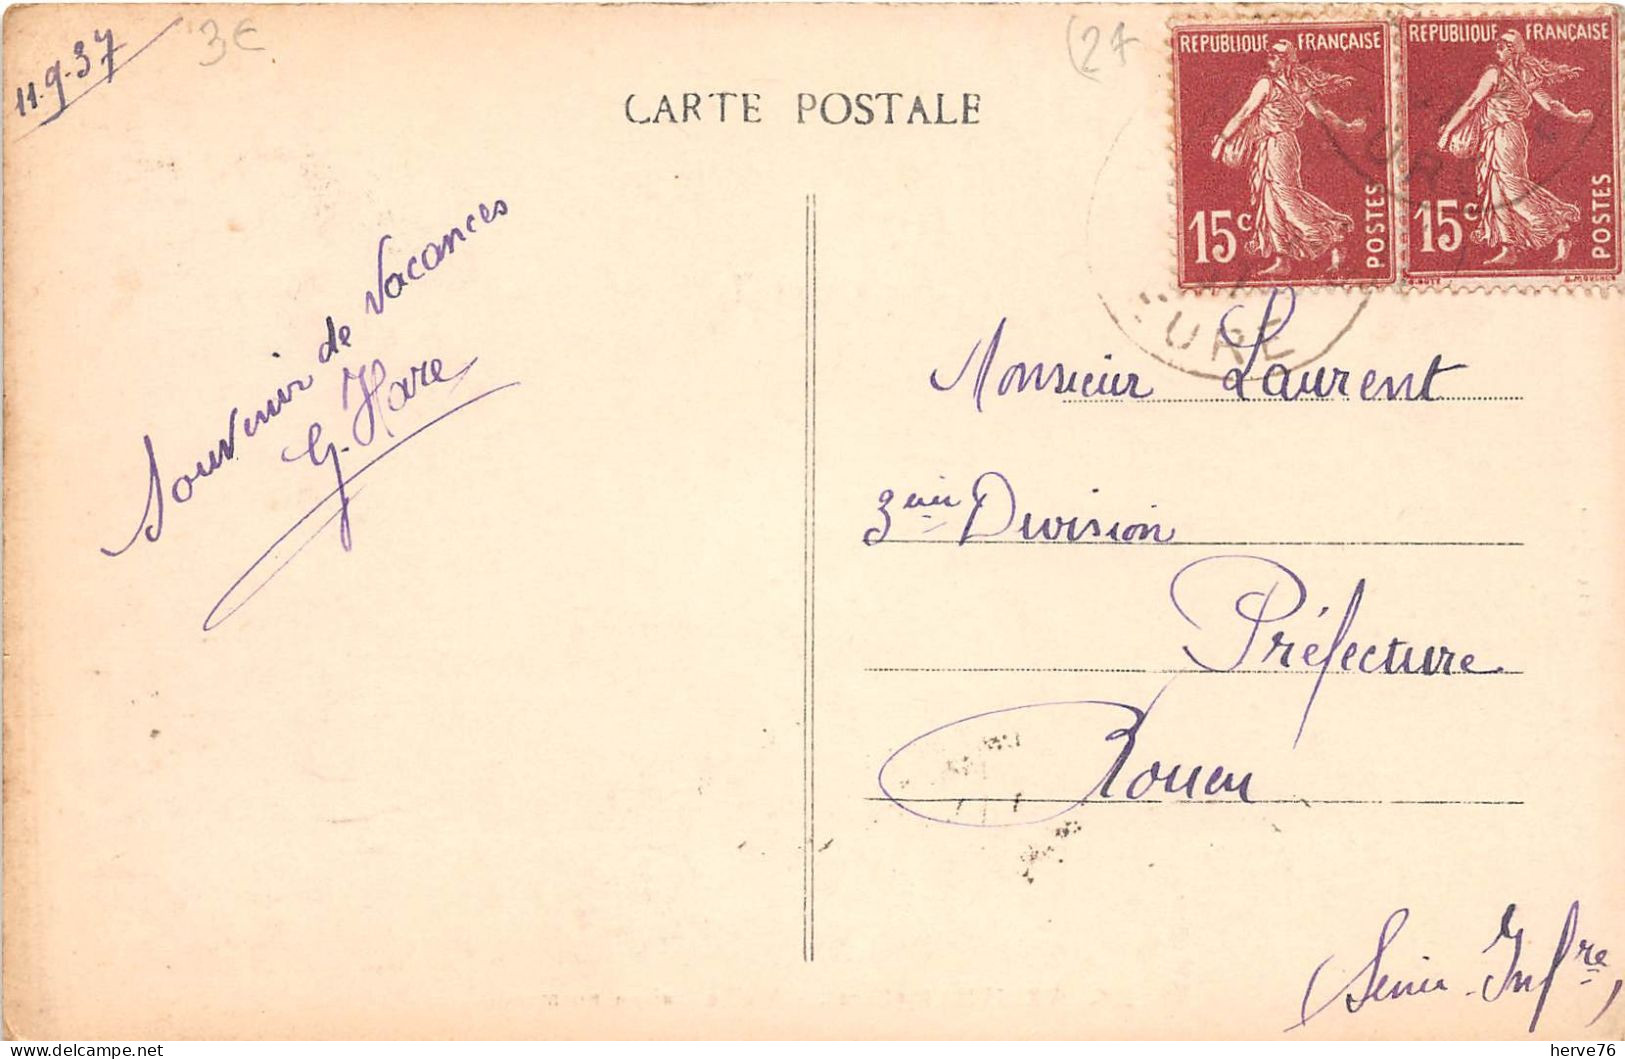 11.9.37
3€
(27
CARTE POSTALE
REPUBLIQUE FRANÇAISE
15c
POSTES
REPUBLIQUE FRANÇAISE
15c
POSTES
EURE
Souvenir de Vacances
G. Hare
Monsieur Laurent
3eme Division
Préfecture
Rouen
(Seine-Infre)
herve76